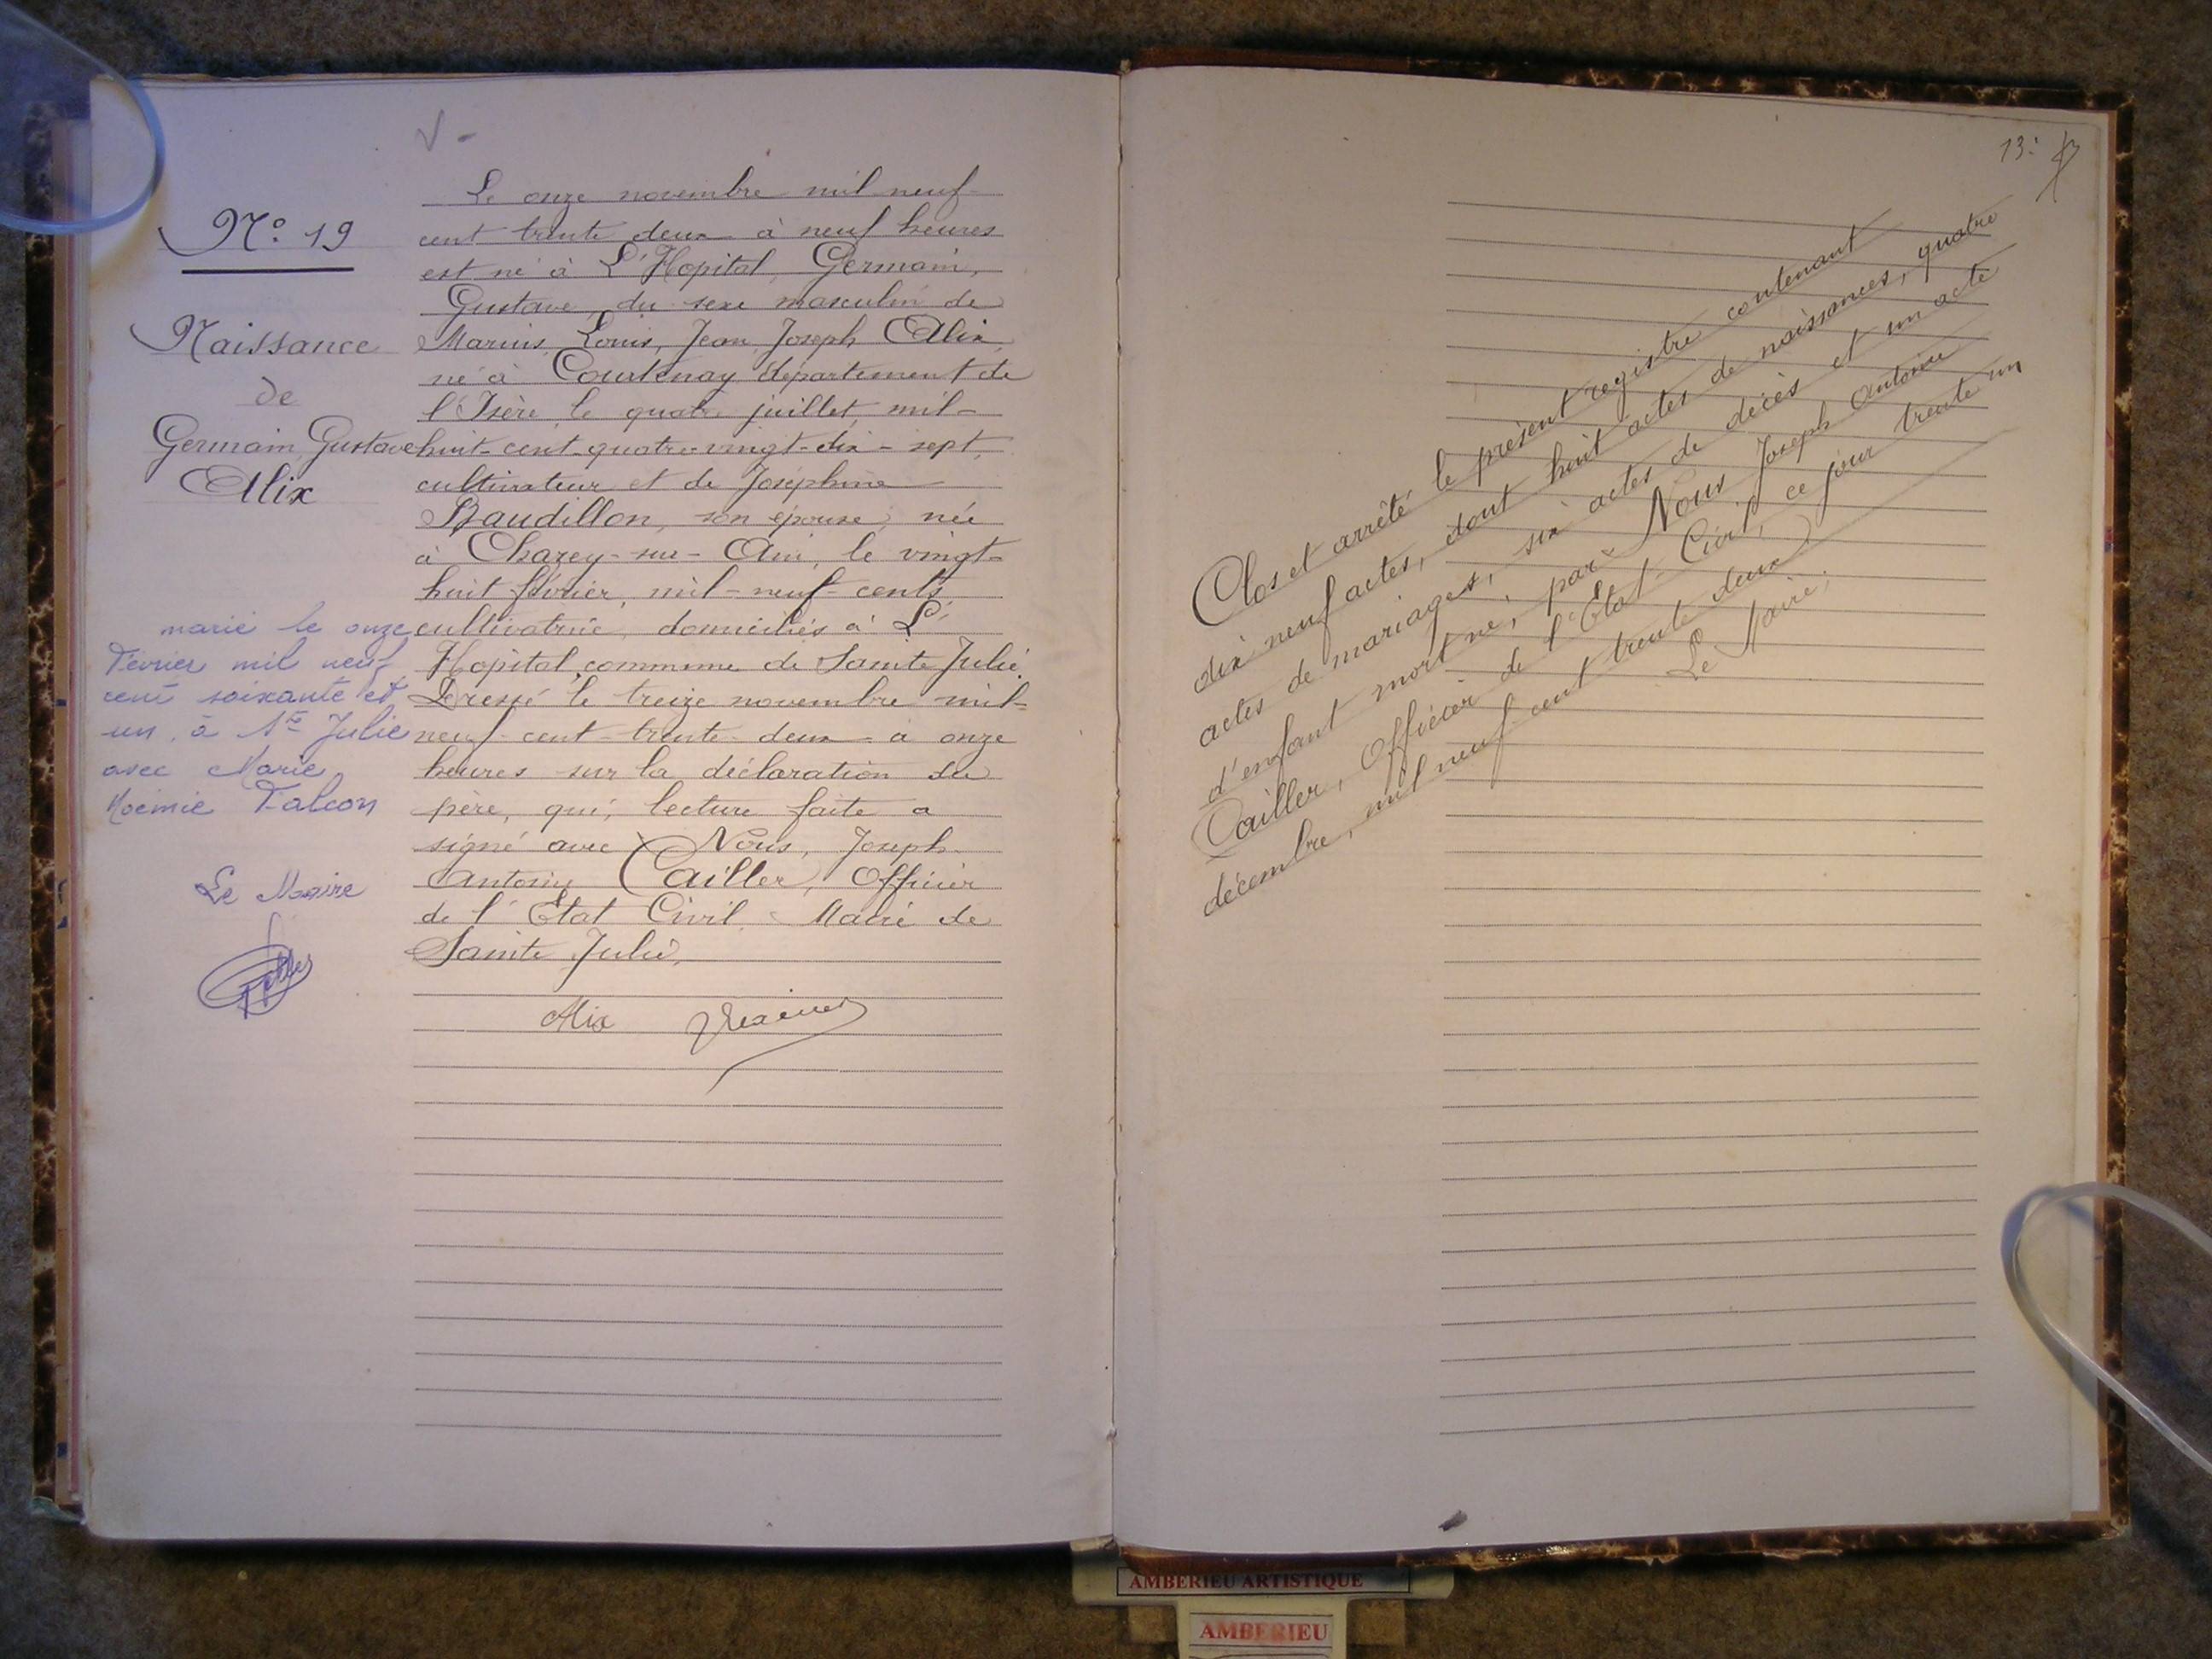 N° 19
Naissance
de
Germain Gustave
Alix
marie le onze
Février mil neuf
cent soixante et
un, à Ste Julie
avec Marie
Noémie Falcon
Le Maire
Le onze novembre mil neuf
cent trente deux à neuf heures
est né à L'Hopital, Germain,
Gustave, du sexe masculin de
Marius, Louis, Jean, Joseph Alix,
né à Courtenay département de
l'Isère, le quatre juillet, mil-
huit-cent-quatre-vingt-dix-sept,
cultivateur et de Joséphine
Baudillon, son épouse, née
à Chazey-sur-Ain, le vingt-
huit février, mil-neuf-cents,
cultivatrice, domiciliés à L'
Hopital, commune de Sainte Julie.
Dressé le treize novembre mil-
neuf-cent-trente-deux à onze
heures sur la déclaration du
père, qui, lecture faite a
signé avec Nous, Joseph
Antoine Cailler, Officier
de l'Etat Civil, Maire de
Sainte Julie.
Alix
13
Clos et arrêté le présent registre contenant
dix neuf actes, dont huit actes de naissances, quatre
actes de mariages, six actes de décès et un acte
d'enfant mort né, par Nous Joseph Antoine
Cailler, Officier de l'Etat-Civil, ce jour trente un
décembre, mil neuf cent trente deux
Le Maire,
AMBERIEU ARTISTIQUE
AMBERIEU